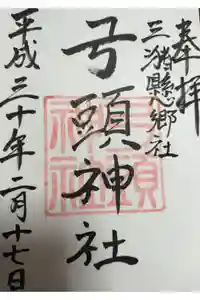 奉拝
三潴縣郷社
弓頭神社
平成三十年二月十七日